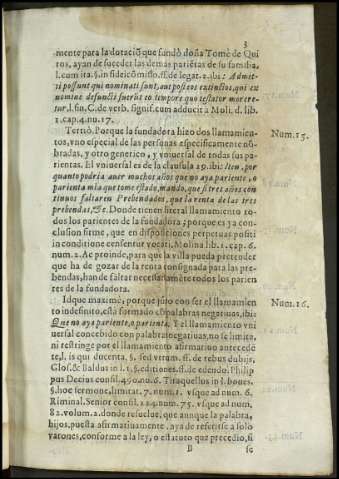 3
mente para la dotaciõ que fundò doña Tomè de Qui
ros, ayan de suceder las demas parietas de su familia,
l. cum ita. §. in fideicõmisso. ff. de legat. 2. ibi: Admit-
ti possunt qui nominati sunt, aut post eos extinctos, qui ex
nomine defuncti fuerũt eo tempore quo testator morere
tur. l. fin. C. de verb. signif. cum adductis à Moli. d. lib.
1. cap. 4. nu. 17.
Tertiò. Porque la fundadora hizo dos llamamien-
tos, vno especial de las personas especificamente nõ-
bradas, y otro generico, y vniuersal de todas sus pa-
rientas. El vniuersal es de la clausula 29. ibi: Iten, por
quanto podria auer muchos años que no aya pariente, o
parienta mia que tome estado, mando, que si tres años con
tinuos faltaren Prebendados, que la renta de las tres
prebendas, &c. Donde tienen literal llamamiento to-
dos los parientes de la fundadora; porque es ya con-
clusion firme, que en disposiciones perpetuas positi
in conditione censentur vocati, Molina lib. 1. cap. 6.
num. 2. Ac proinde, para que la villa pueda pretender
que ha de gozar de la renta consignada para las pre-
bendas, han de faltar necessariamẽte todos los parien
tes de la fundadora.
Idque maximè, porque no con ser el llamamien
to indefinito, està formado cõ palabras negatiuas, ibi:
Que no aya pariente, o parienta. Y el llamamiento vni
uersal concebido con palabras negatiuas, no se limita,
ni restringe por el llamamiento afirmatiuo antecedẽ
te, l. is qui ducenta. §. sed vtrum. ff. de rebus dubijs,
Glos. & Baldus in l. 1. §. editiones. ff. de edendo. Philip
pus Decius consil. 490. nu. 6. Tiraquellus in l. boues.
§. hoc sermone, limitat. 7. num. 1. vsque ad nu. 6.
Riminal. Senior consil. 224. num. 75. vsque ad num.
82. volum. 2. donde resuelue, que aunque la palabra,
hijos, puesta afirmatiuamente, aya de referirse a solo
varones, conforme a la ley, o estatuto que precedio, si
B
se
Num. 15.
Num. 16.